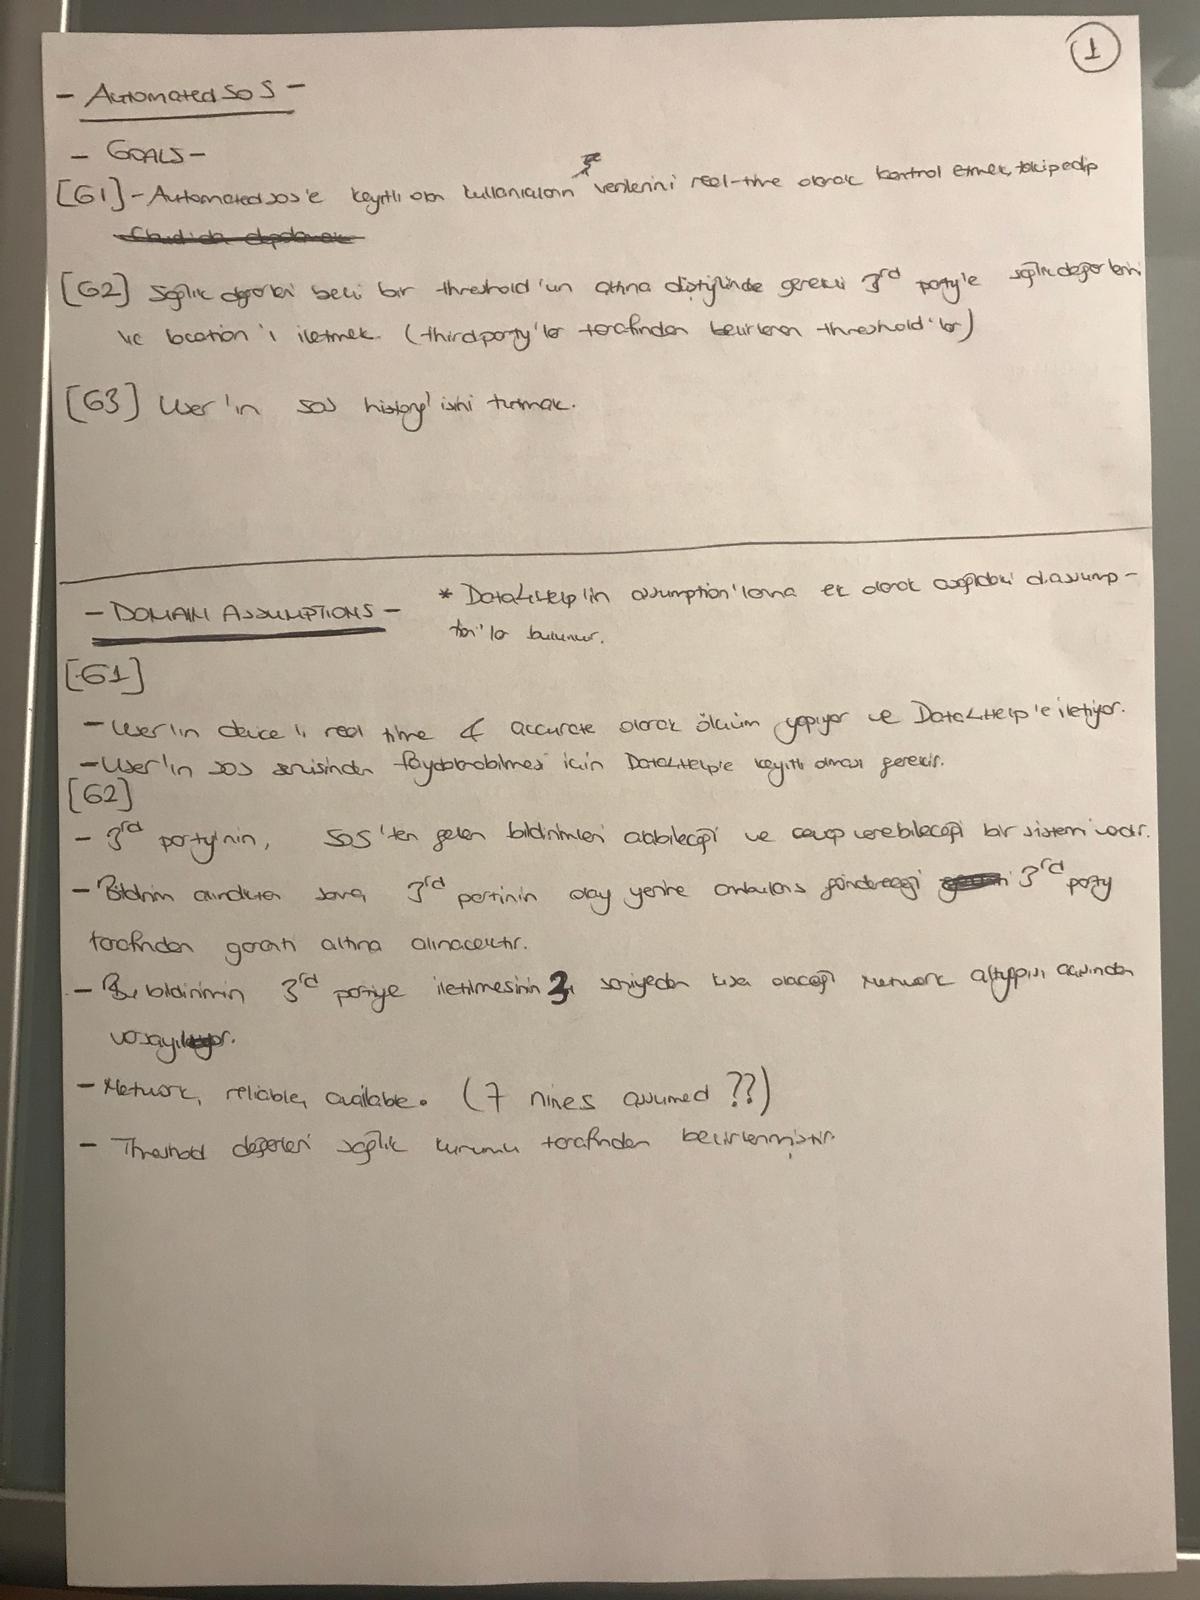 1
- Automated SOS -
- GOALS -
[G1] - Automated sos'e kayıtlı olan kullanıcıların verilerini real-time olarak kontrol etmek, takip edip
[G2] Sağlık değerleri belli bir threshold'un altına düştüğünde gerekli 3rd party'e sağlık değerlerini
ve location'ı iletmek. (third party'ler tarafından belirlenen threshold'lar)
[G3] User'ın sos history'isini tutmak.
- DOMAIN ASSUMPTIONS - * Data4Help'in assumption'larına ek olarak aşağıdaki d.assump-
tion'lar bulunur.
[G1]
- User'ın device'ı real time & accurate olarak ölçüm yapıyor ve Data4Help'e iletiyor.
- User'ın sos servisinden faydalanabilmesi için Data4Help'e kayıtlı olması gerekir.
[G2]
- 3rd party'nin, SOS'ten gelen bildirimleri alabileceği ve cevap verebileceği bir sistemi vardır.
- Bildirim alındıktan sonra, 3rd partinin olay yerine ambulans göndereceği 3rd party
tarafından garanti altına alınacaktır.
- Bu bildirimin 3rd partiye iletilmesinin 3 saniyeden kısa olacağı network altyapısı açısından
varsayılıyor.
- Network, reliable, available. (7 nines assumed ??)
- Threshold değerleri sağlık kurumu tarafından belirlenmiştir.